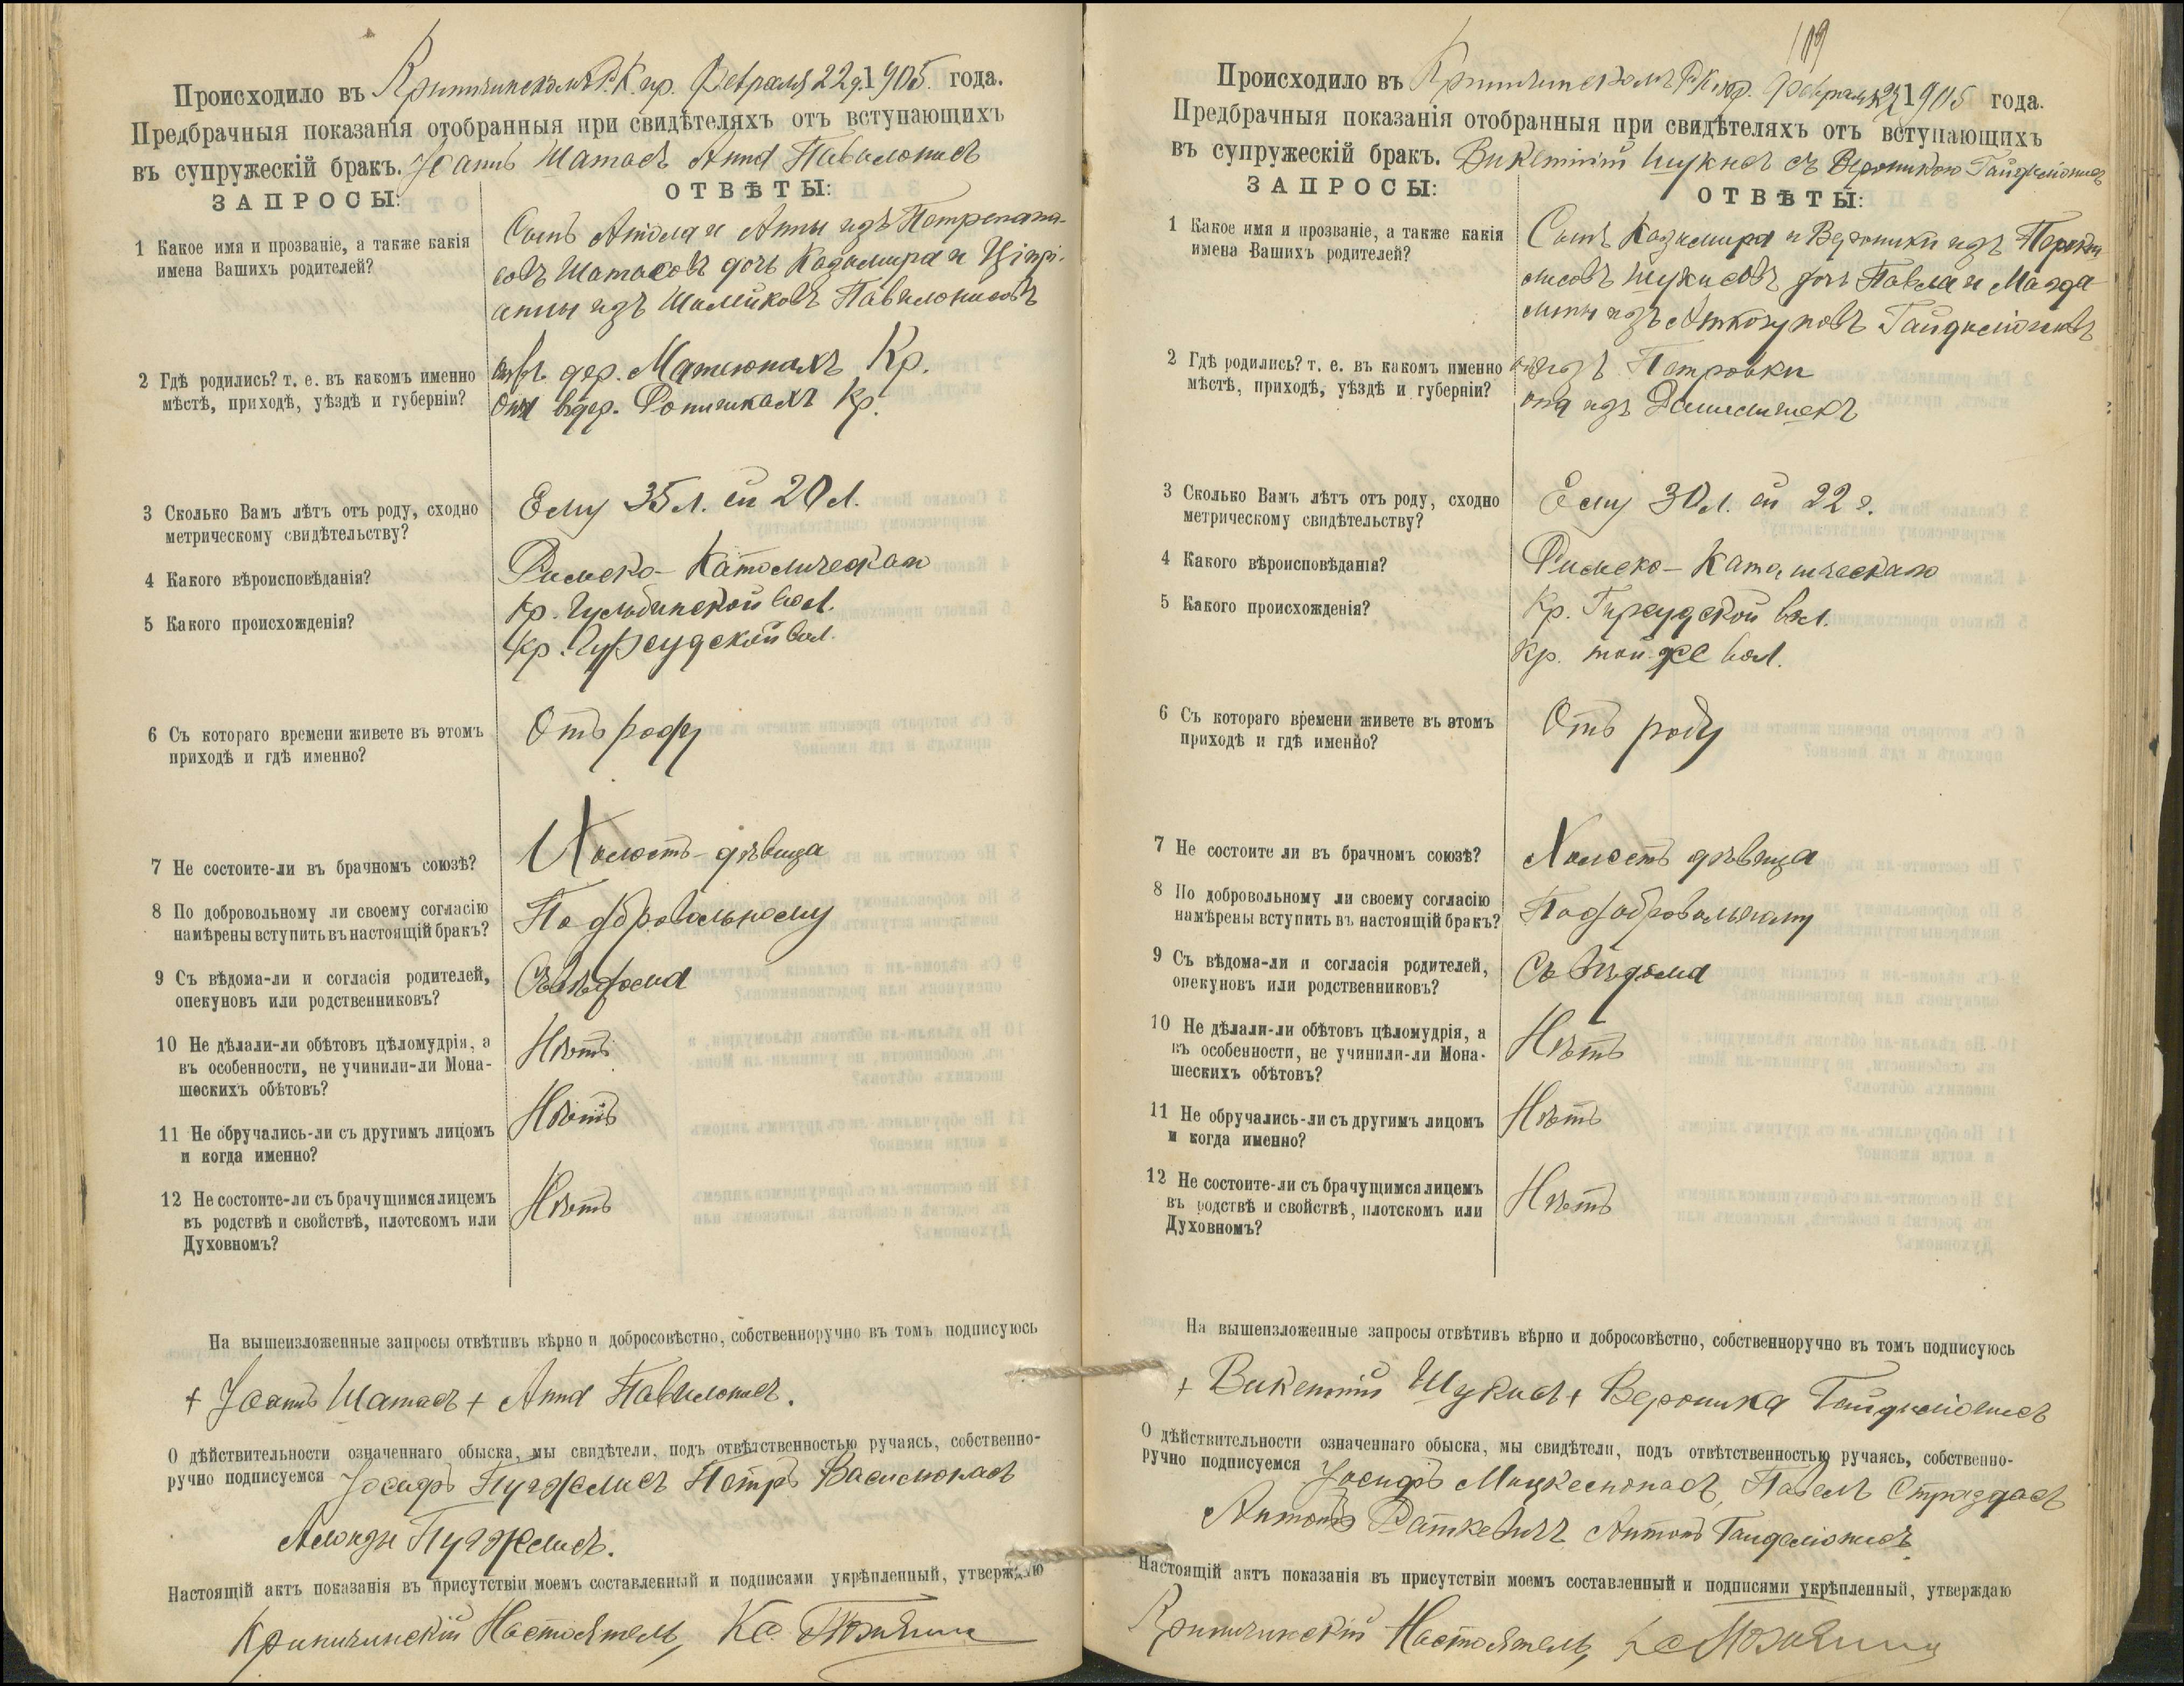 Происходило въ Криничинскомъ Р. К. пр. Февраля 22 д. 1905 года.
Предбрачныя показанія отобранныя при свидѣтеляхъ отъ вступающихъ
въ супружескій бракъ. Іоаннъ Шатасъ Анна Павилонисъ
ЗАПРОСЫ:
ОТВѢТЫ:
1 Какое имя и прозваніе, а также какія
имена Вашихъ родителей?
Сынъ и Анны изъ
Шатасовъ дочь Казимира и Ціпрі-
анны изъ Павилонисовъ
2 Гдѣ родились? т. е. въ какомъ именно
мѣстѣ, приходѣ, уѣздѣ и губерніи?
дер. Матеюнахъ Кр.
Она в дер. Кр.
3 Сколько Вамъ лѣтъ отъ роду, сходно
метрическому свидѣтельству?
Ему 35 л. ей 20 л.
4 Какого вѣроисповѣданія?
Римско-Католическаго
5 Какого происхожденія?
Кр. вол.
Кр. вол.
6 Съ котораго времени живете въ этомъ
приходѣ и гдѣ именно?
Отъ роду
7 Не состоите-ли въ брачномъ союзѣ?
Холостъ - дѣвица
8 По добровольному ли своему согласію
намѣрены вступить въ настоящій бракъ?
По добровольному
9 Съ вѣдома-ли и согласія родителей,
опекуновъ или родственниковъ?
Съ вѣдома
10 Не дѣлали-ли обѣтовъ цѣломудрія, а
въ особенности, не учинили-ли Мона-
шескихъ обѣтовъ?
Нѣтъ
11 Не обручались-ли съ другимъ лицомъ
и когда именно?
Нѣтъ
12 Не состоите-ли съ брачущимся лицемъ
въ родствѣ и свойствѣ, плотскомъ или
Духовномъ?
Нѣтъ
На вышеизложенные запросы отвѣтивъ вѣрно и добросовѣстно, собственноручно въ томъ подписуюсь
+ Іоаннъ Шатасъ + Анна Павилонисъ.
О дѣйствительности означеннаго обыска, мы свидѣтели, подъ отвѣтственностью ручаясь, собственно-
ручно подписуемся Іосифъ Пугжелисъ Петръ Васильонасъ
Пугжелисъ.
Настоящій актъ показанія въ присутствіи моемъ составленный и подписами укрѣпленный, утверждаю
Криничинскій Настоятель, Кс.
109
Происходило въ Криничинскомъ Р. К. пр. Февраля 22 1905 года.
Предбрачныя показанія отобранныя при свидѣтеляхъ отъ вступающихъ
въ супружескій бракъ. Викентій Шукисъ съ Вероникою Гайделіонисъ
ЗАПРОСЫ:
ОТВѢТЫ:
1 Какое имя и прозваніе, а также какія
имена Вашихъ родителей?
Сынъ Казимира и Вероники изъ
Шукисовъ дочь Павла и Магда-
лины изъ
2 Гдѣ родились? т. е. въ какомъ именно
мѣстѣ, приходѣ, уѣздѣ и губерніи?
изъ Петровки
она изъ
3 Сколько Вамъ лѣтъ отъ роду, сходно
метрическому свидѣтельству?
Ему 30 л. ей 22 г.
4 Какого вѣроисповѣданія?
Римско-Католическаго
5 Какого происхожденія?
Кр. вол.
Кр. той же вол.
6 Съ котораго времени живете въ этомъ
приходѣ и гдѣ именно?
Отъ роду
7 Не состоите ли въ брачномъ союзѣ?
Холостъ дѣвица
8 По добровольному ли своему согласію
намѣрены вступить въ настоящій бракъ?
По добровольному
9 Съ вѣдома-ли и согласія родителей,
опекуновъ или родственниковъ?
Съ вѣдома
10 Не дѣлали-ли обѣтовъ цѣломудрія, а
въ особенности, не учинили-ли Мона-
шескихъ обѣтовъ?
Нѣтъ
11 Не обручались-ли съ другимъ лицомъ
и когда именно?
Нѣтъ
12 Не состоите-ли съ брачущимся лицемъ
въ родствѣ и свойствѣ, плотскомъ или
Духовномъ?
Нѣтъ
На вышеизложенные запросы отвѣтивъ вѣрно и добросовѣстно, собственноручно въ томъ подписуюсь
+ Викентій Шукисъ + Вероника Гайделіонисъ
О дѣйствительности означеннаго обыска, мы свидѣтели, подъ отвѣтственностью ручаясь, собственно-
ручно подписуемся Іосифъ Мицкельонасъ, Павелъ Страздасъ
Антонъ Раткевичъ Антонъ Гайделіонисъ
Настоящій актъ показанія въ присутствіи моемъ составленный и подписями укрѣпленный, утверждаю
Криничинскій Настоятель,